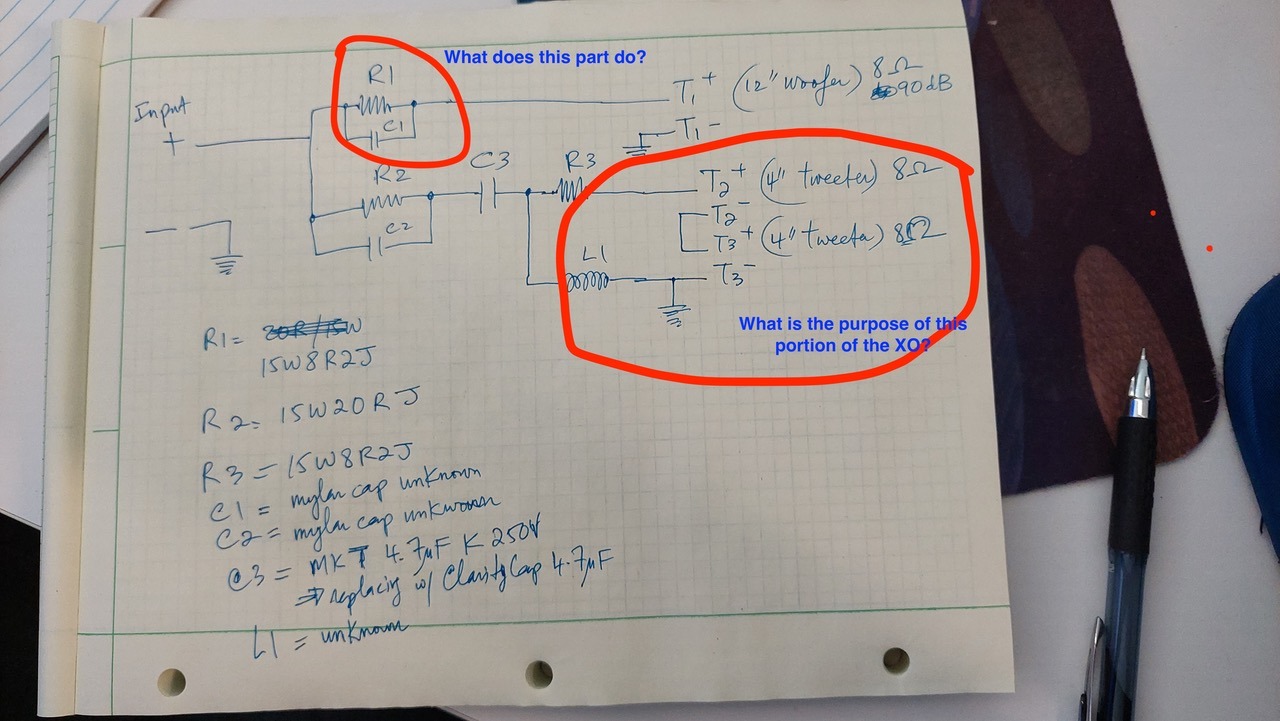 What does this part do?
R1
T1+ (12" woofer) 8Ω
90dB
Input
C1
+
T1-
C3
R3
R2
T2+ (4" tweeter) 8Ω
T2-
C2
T3+ (4" tweeter) 8Ω
—
L1
T3-
What is the purpose of this
portion of the XO?
R1= 20R/15W
15W8R2J
R2= 15W20RJ
R3=15W8R2J
C1 = mylar cap unknown
C2= mylar cap unknown
C3= MKT 4.7μF K 250V
⇒ replacing w/ ClarityCap 4.7μF
L1 = unknown